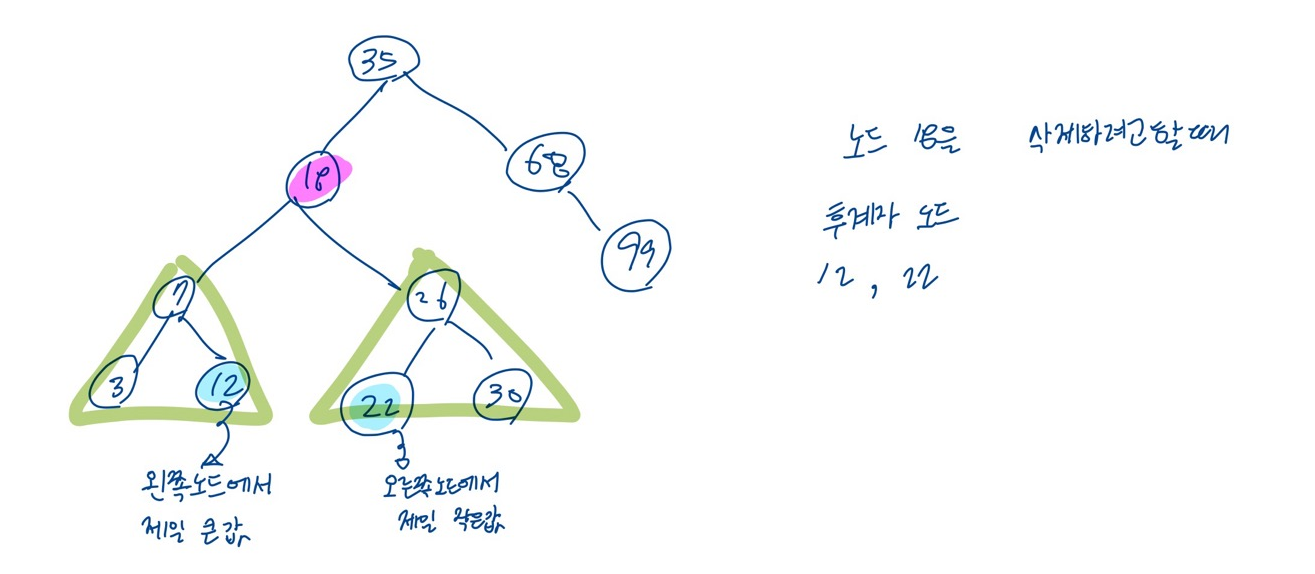 35
18
68
99
7
26
3
12
22
30
왼쪽노드에서
제일 큰값
오른쪽노드에서
제일 작은값
노드 18을 삭제하려고할때
후계자 노드
12, 22